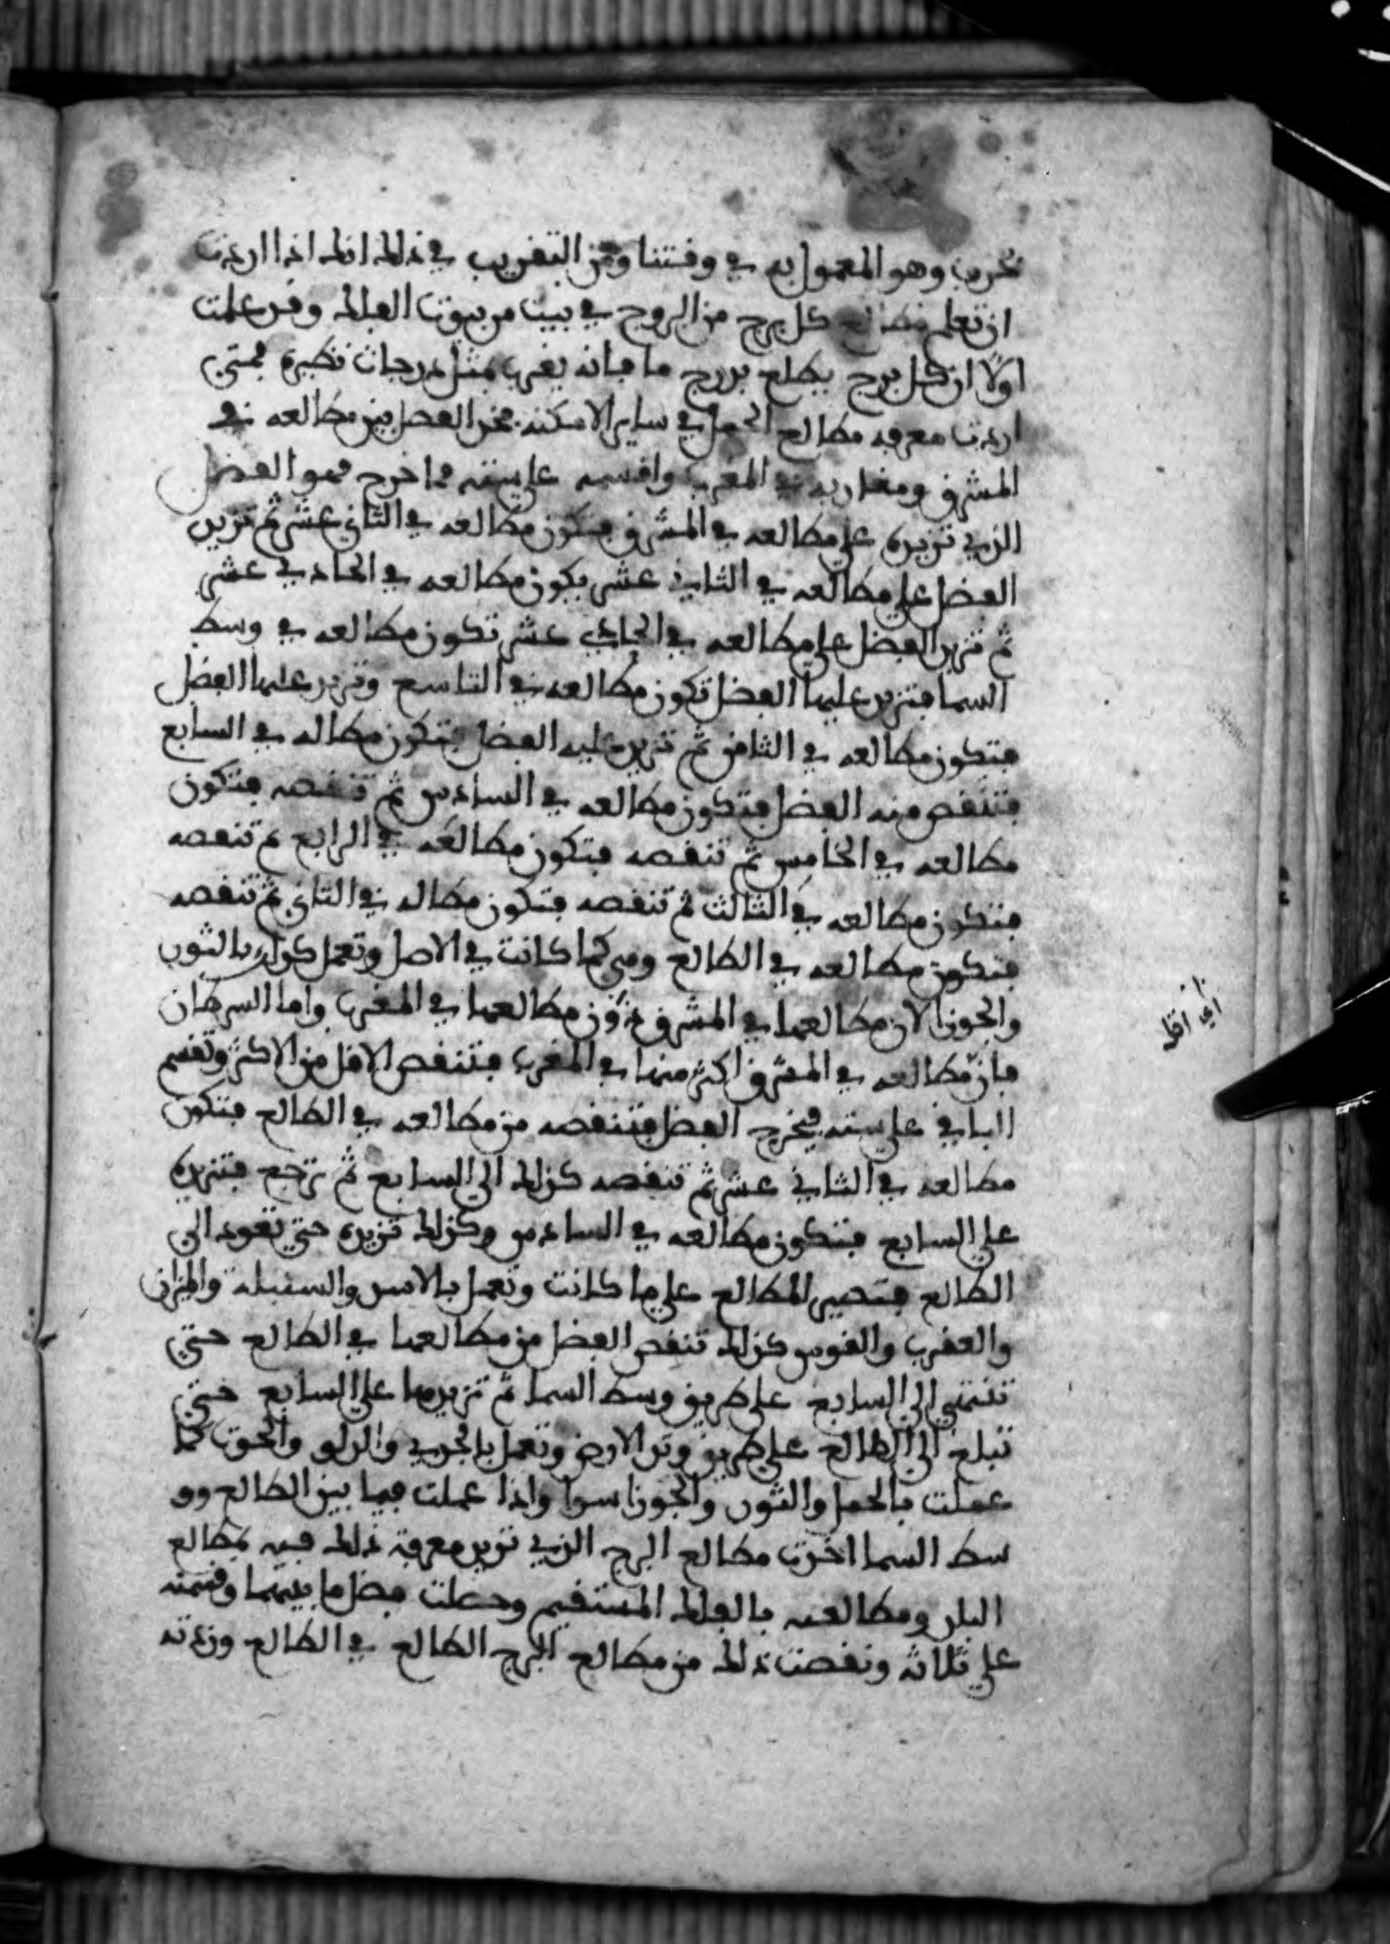 تقريب وهو المعمول به في وقتنا ومن التقريب في ذلك انك اذا اردت
ان تعلم مطالع كل برج من البروج في بيت من بيوت الفلك وقد علمت
اولا ان كل برج يطلع بدرج ما فانه يغرب بمثل درجات نظيره فمتى
اردت معرفه مطالع الحمل في ساير الامكنه فخذ الفضل بين مطالعه في
المشرق ومغاربه في المغرب واقسمه على سته فما خرج فهو الفضل
الذي تزيده على مطالعه في المشرق فتكون مطالعه في الثاني عشر ثم تزيد
الفضل على مطالعه في الثاني عشر يكون مطالعه في الحادي عشر
ثم تزيد الفضل على مطالعه في الحادي عشر تكون مطالعه في وسط
السما فتزيد عليها الفضل تكون مطالعه في التاسع وتزيد عليها الفضل
فتكون مطالعه في الثامن ثم تزيد عليه الفضل فتكون مطالعه في السابع
فتنقص منه الفضل فتكون مطالعه في السادس ثم تنقصه فتكون
مطالعه في الخامس ثم تنقصه فتكون مطالعه في الرابع ثم تنقصه
فتكون مطالعه في الثالث ثم تنقصه فتكون مطالعه في الثاني ثم تنقصه
فتكون مطالعه في الطالع وهي كما كانت في الاصل وتعمل كذلك بالثور
والجوزا لان مطالعهما في المشرق دون مطالعهما في المغرب واما السرطان
فان مطالعه في المشرق اكثر منها في المغرب فتنقص الاقل من الاكثر وتقسم
الباقي على سته فيخرج الفضل فتنقصه من مطالعه في الطالع فتكون
مطالعه في الثاني عشر ثم تنقصه كذلك الى السابع ثم ترجع فتزيده
على السابع فتكون مطالعه في السادس وكذلك تزيده حتى تعود الى
الطالع فتصير المطالع على ما كانت وتعمل بالاسد والسنبله والميزان
والعقرب والقوس كذلك تنقص الفضل من مطالعها في الطالع حتى
تنتهي الى السابع على طريق وسط السما ثم تزيدها على السابع حتى
تبلغ الى الطالع على طريق وتد الارض وتعمل بالجدي والدلو والحوت كما
عملت بالحمل والثور والجوزا سوا واذا عملت فيما بين الطالع وو
سط السما اخذت مطالع البرج الذي تريد معرفة ذلك فيه بمطالع
البلد ومطالعه بالفلك المستقيم وحصلت فضل ما بينهما وقسمته
على ثلاثه ونقصت ذلك من مطالع البرج الطالع في الطالع وزدته